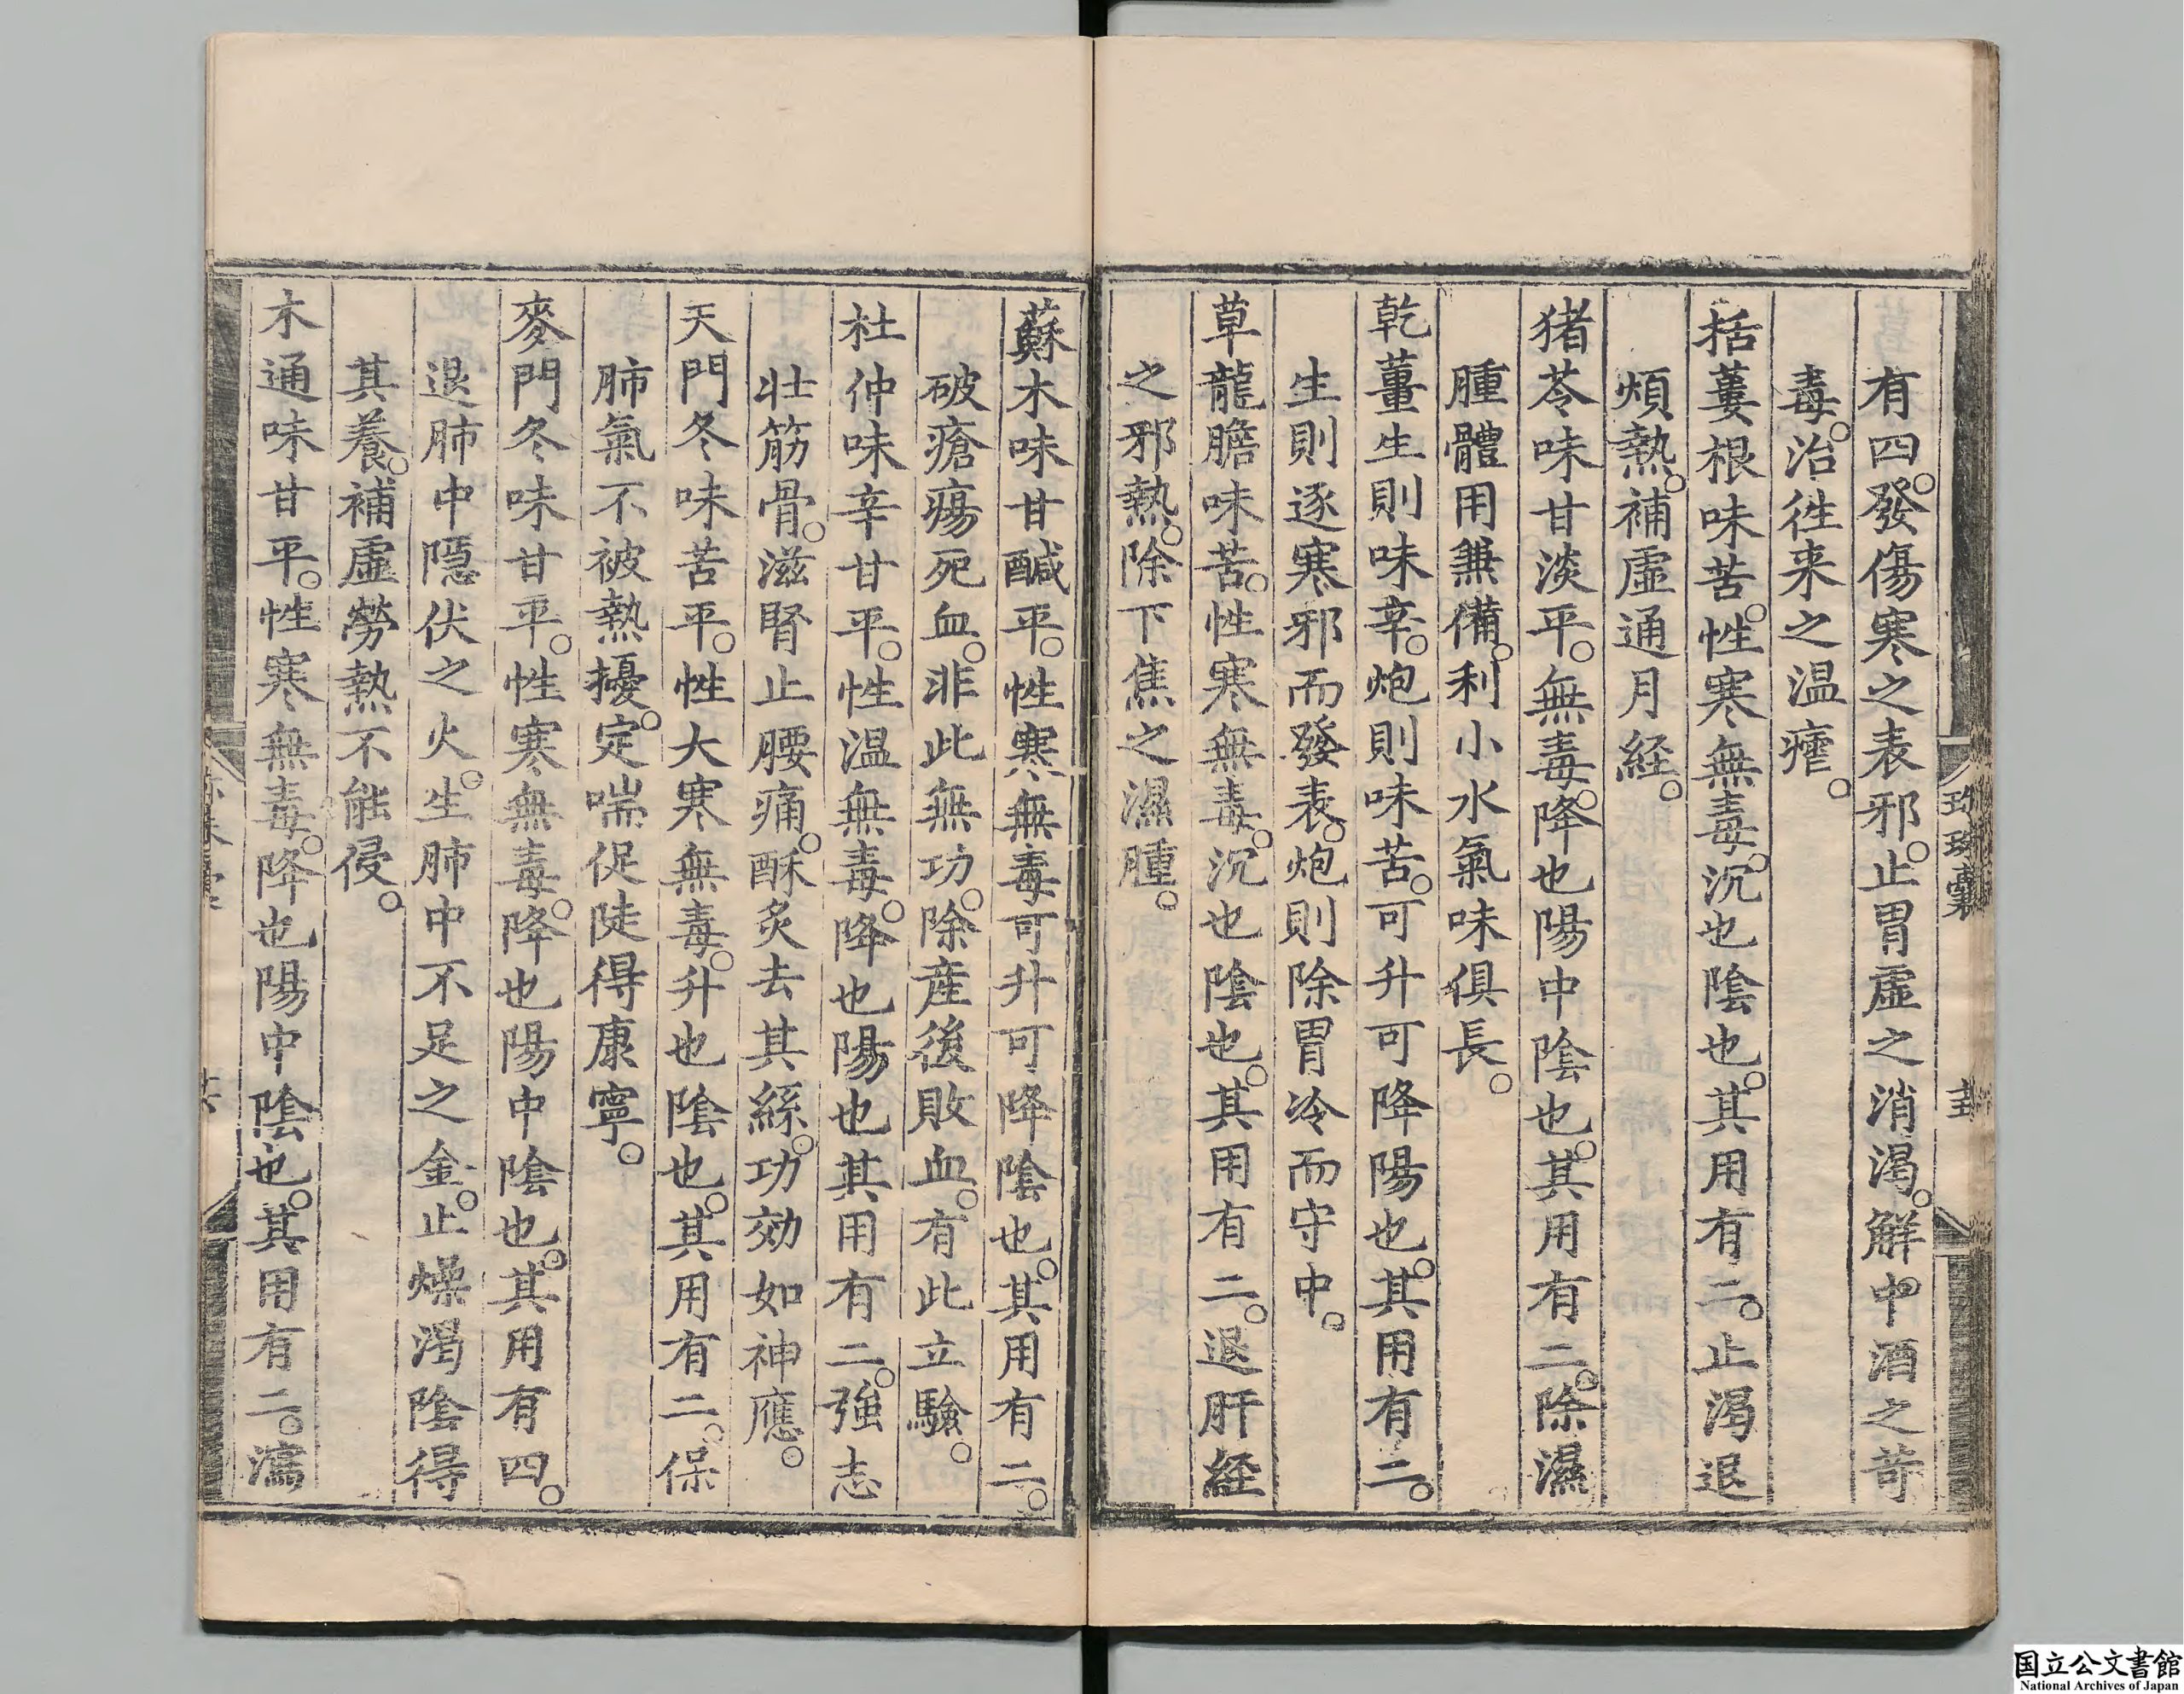 有四。發傷寒之表邪。止胃虛之消渴。觧中酒之苛
毒。治徃来之温瘧。
括蔞根味苦。性寒無毒。沉也陰也。其用有二。止渴退
煩熱。補虛通月経。
猪苓味甘淡平。無毒。降也陽中陰也。其用有二。除濕
腫體用兼備。利小水氣味俱長。
乾薑生則味辛。炮則味苦。可升可降陽也。其用有二。
生則逐寒邪而發表。炮則除胃冷而守中。
草龍膽味苦。性寒無毒。沉也陰也。其用有二。退肝経
之邪熱。除下焦之濕腫。
蘇木味甘鹹平。性寒無毒可升可降陰也。其用有二。
破瘡瘍死血。非此無功。除産後敗血。有此立驗。
杜仲味辛甘平。性温無毒。降也陽也其用有二。強志
壯筋骨。滋腎止腰痛。酥炙去其絲。功効如神應。
天門冬味苦平。性大寒無毒。升也陰也。其用有二。保
肺氣不被熱擾。定喘促陡得康寧。
麥門冬味甘平。性寒無毒。降也陽中陰也。其用有四。
退肺中隱伏之火。生肺中不足之金。止燥渴陰得
其養。補虛勞熱不能侵。
木通味甘平。性寒無毒。降也陽中陰也。其用有二。瀉
国立公文書館
National Archives of Japan